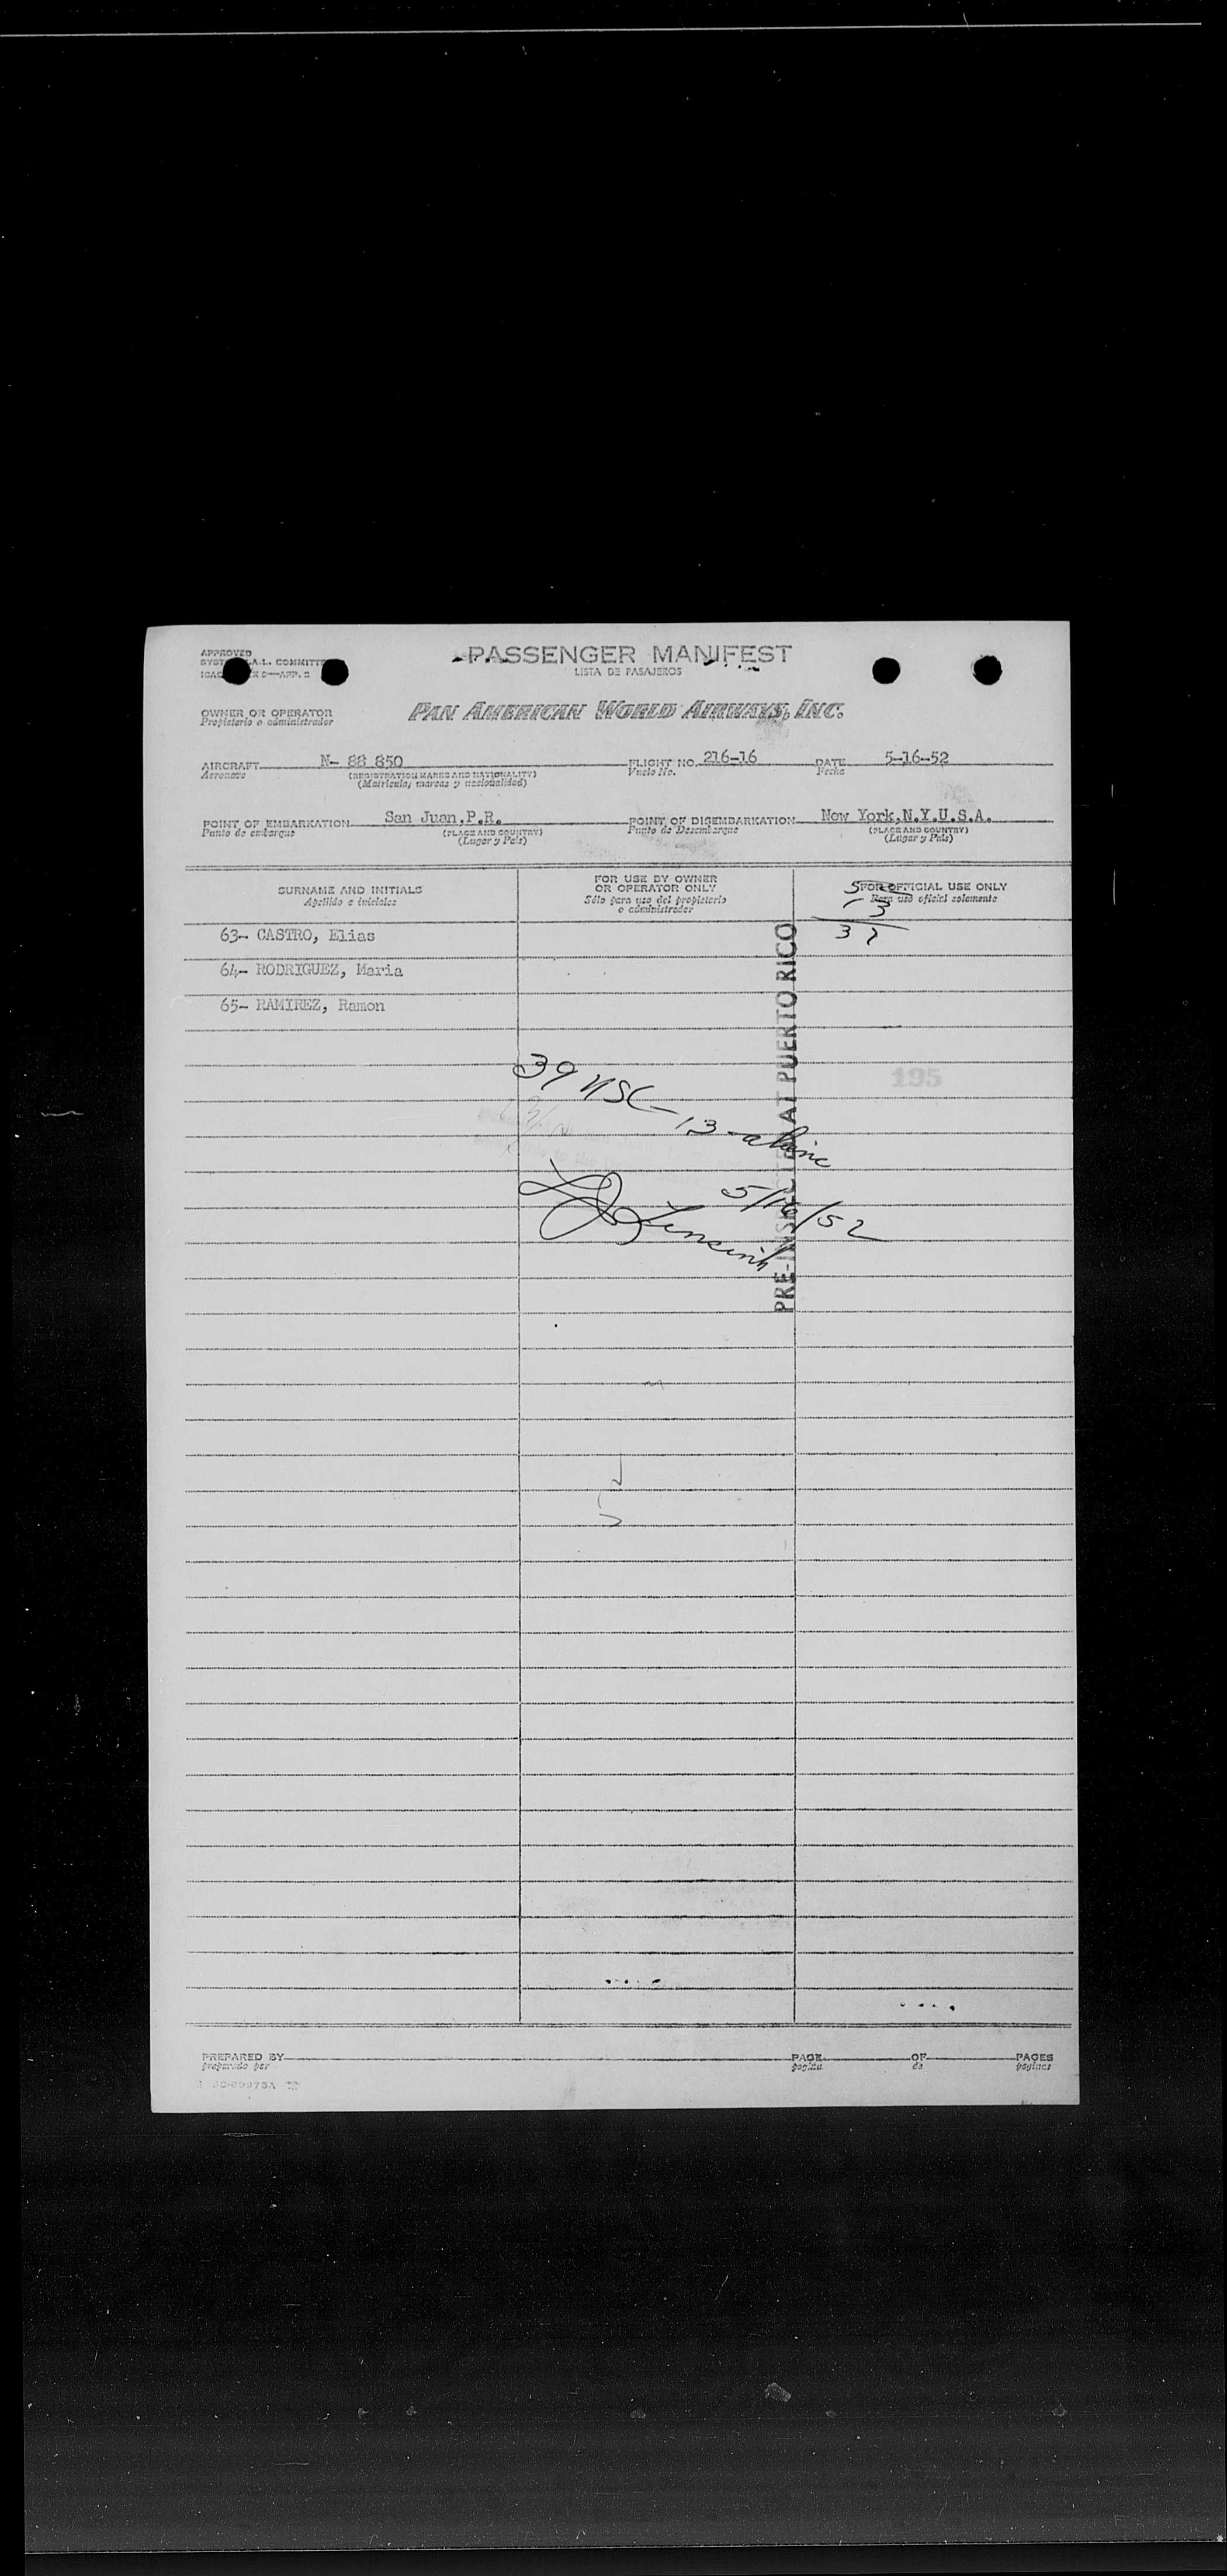 APPROVED
COMMITTEE
PASSENGER MANIFEST
LISTA DE PASAJEROS
OWNER OR OPERATOR
Propietario o administrador
PAN AMERICAN WORLD AIRWAYS, INC.
AIRCRAFT N- 88 850 FLIGHT NO. 216-16 DATE 5-16-52
Aeronave (REGISTRATION MARKS AND NATIONALITY) Vuelo No. Fecha
(Matricula, marcas y nacionalidad)
POINT OF EMBARKATION San Juan,P.R. POINT OF DISEMBARKATION New York,N.Y.U.S.A.
Punto de embarque (PLACE AND COUNTRY) Punto de Desembarque (PLACE AND COUNTRY)
(Lugar y País) (Lugar y País)
SURNAME AND INITIALS
Apellido e iniciales
FOR USE BY OWNER
OR OPERATOR ONLY
Sólo para uso del propietario
o administrador
FOR OFFICIAL USE ONLY
Para uso oficial solamente
13
63- CASTRO, Elias
64- RODRIGUEZ, Maria
65- RAMIREZ, Ramon
PRE-INSPECTED AT PUERTO RICO
195
39 USC - 13 - aliens
5/16/52
PREPARED BY PAGE OF PAGES
preparado por pagina de paginas